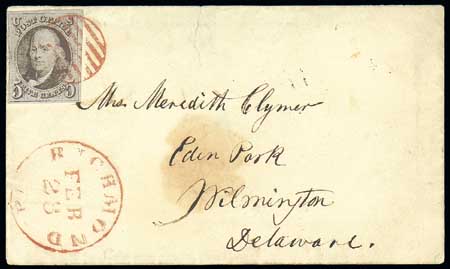 POST OFFICE
5 FIVE CENTS 5
Mrs. Meredith Clymer
Eden Park
Wilmington
Delaware.
RICHMOND
FEB
28